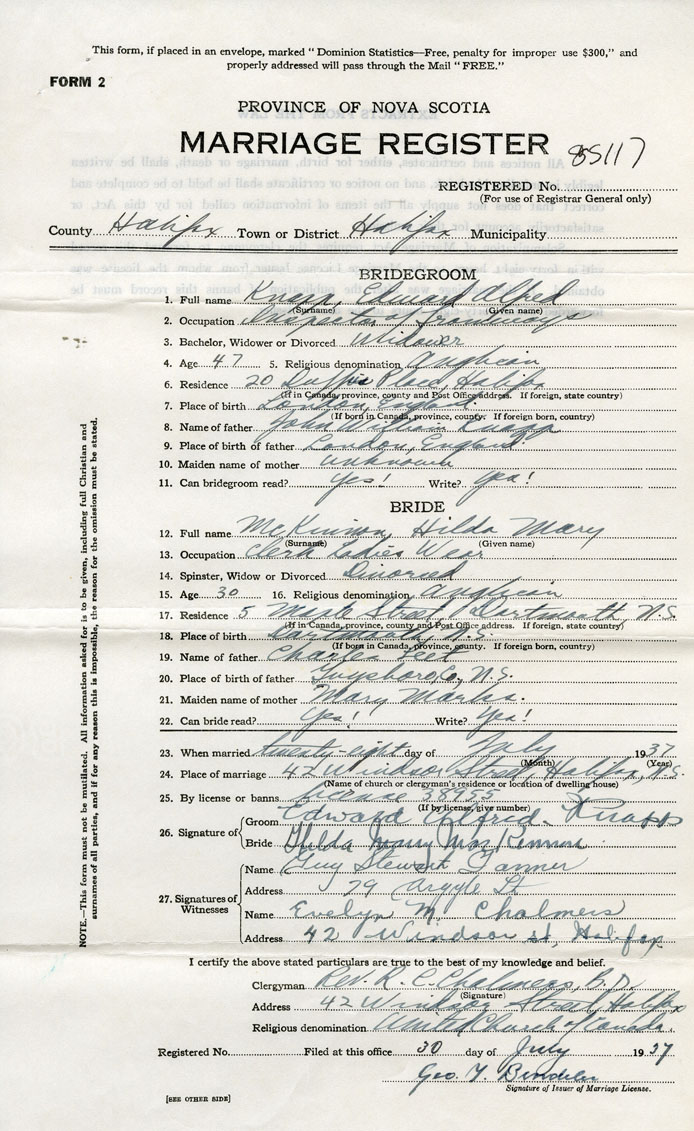 This form, if placed in an envelope, marked "Dominion Statistics—Free, penalty for improper use $300," and
properly addressed will pass through the Mail "FREE."
FORM 2
PROVINCE OF NOVA SCOTIA
MARRIAGE REGISTER 85117
REGISTERED No.
(For use of Registrar General only)
County Halifax Town or District Halifax Municipality
BRIDEGROOM
1. Full name Knapp, Edward Alfred
(Surname) (Given name)
2. Occupation Inspector of Tramways
3. Bachelor, Widower or Divorced Widower
4. Age 47 5. Religious denomination Anglican
6. Residence 20 Duffus Place, Halifax
(If in Canada, province, county and Post Office address. If foreign, state country)
7. Place of birth London, England
(If born in Canada, province, county. If foreign born, country)
8. Name of father John William Knapp
9. Place of birth of father London, England.
10. Maiden name of mother unknown
11. Can bridegroom read? Yes! Write? Yes!
BRIDE
12. Full name McKinnon, Hilda Mary
(Surname) (Given name)
13. Occupation Clerk Ladies Wear
14. Spinster, Widow or Divorced Divorced
15. Age 30 16. Religious denomination Anglican
17. Residence 5 Street, Dartmouth, N.S.
(If in Canada, province, county and Post Office address. If foreign, state country)
18. Place of birth Dartmouth, N.S.
(If born in Canada, province, county. If foreign born, country)
19. Name of father Charles
20. Place of birth of father Guysboro Co, N.S.
21. Maiden name of mother Mary Marks.
22. Can bride read? Yes! Write? Yes!
23. When married twenty-eight day of July 1937
(Month) (Year)
24. Place of marriage 42 Windsor Street, Halifax, N.S.
(Name of church or clergyman's residence or location of dwelling house)
25. By license or banns license 38955
(If by license, give number)
26. Signature of
Groom Edward Alfred Knapp
Bride Hilda Mary MacKinnon
27. Signatures of Witnesses
Name Guy Stewart Tanner
Address 79 Argyle St
Name Evelyn M. Chalmers
Address 42 Windsor st, Halifax
I certify the above stated particulars are true to the best of my knowledge and belief.
Clergyman Rev. R. C. Chalmers, B.D.
(Signature)
Address 42 Windsor Street, Halifax
Religious denomination United Church of Canada.
Registered No. Filed at this office 30 day of July 1937
Geo. T.
Signature of Issuer of Marriage License.
[SEE OTHER SIDE]
NOTE.—This form must not be mutilated. All information asked for is to be given, including full Christian and
surnames of all parties, and if for any reason this is impossible, the reason for the omission must be stated.